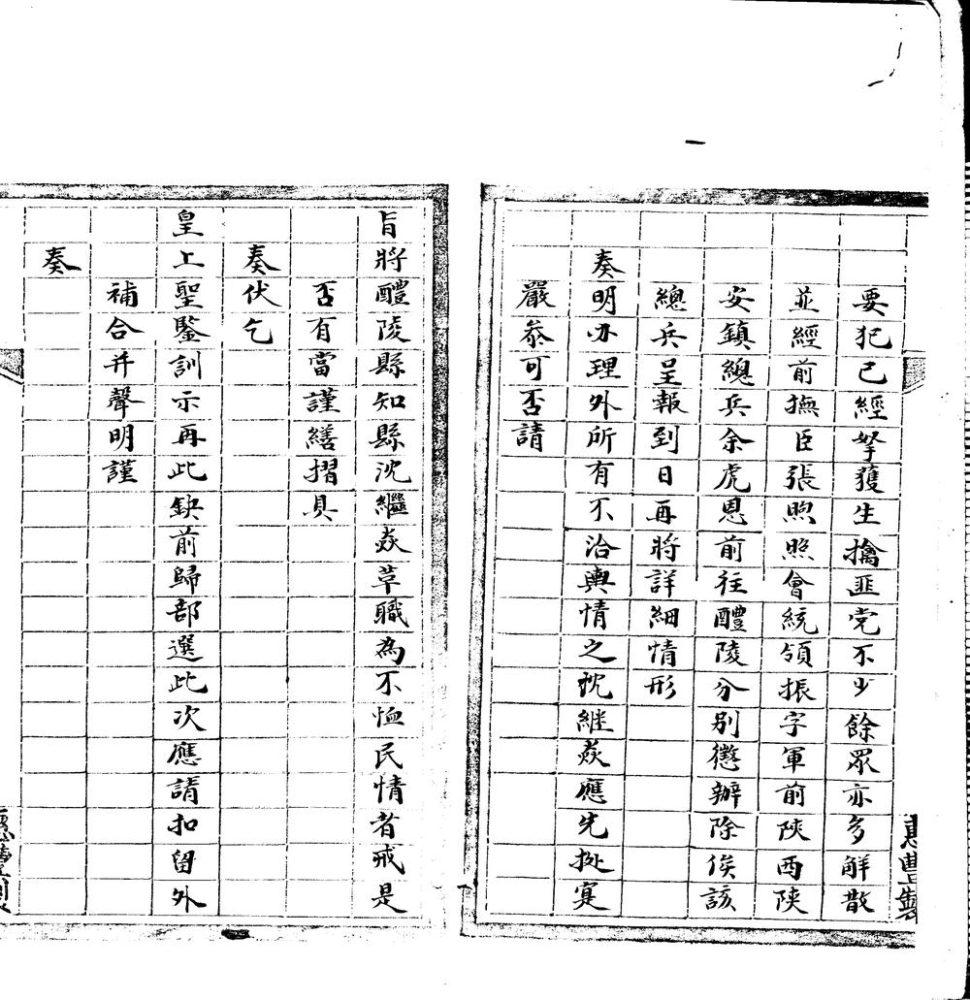 要犯已經拏獲生擒匪党不少餘眾亦多解散
並經前撫臣張煦照會統領振字軍前陝西陝
安鎮總兵余虎恩前往醴陵分別懲辦除俟該
總兵呈報到日再將詳細情形
奏明办理外所有不洽輿情之沈繼焱應先據寔
嚴叅可否請
旨將醴陵縣知縣沈繼焱革職為不恤民情者戒是
否有當謹繕摺具
奏伏乞
皇上聖鑒訓示再此缺前歸部選此次應請扣留外
補合并聲明謹
奏
惠豐製